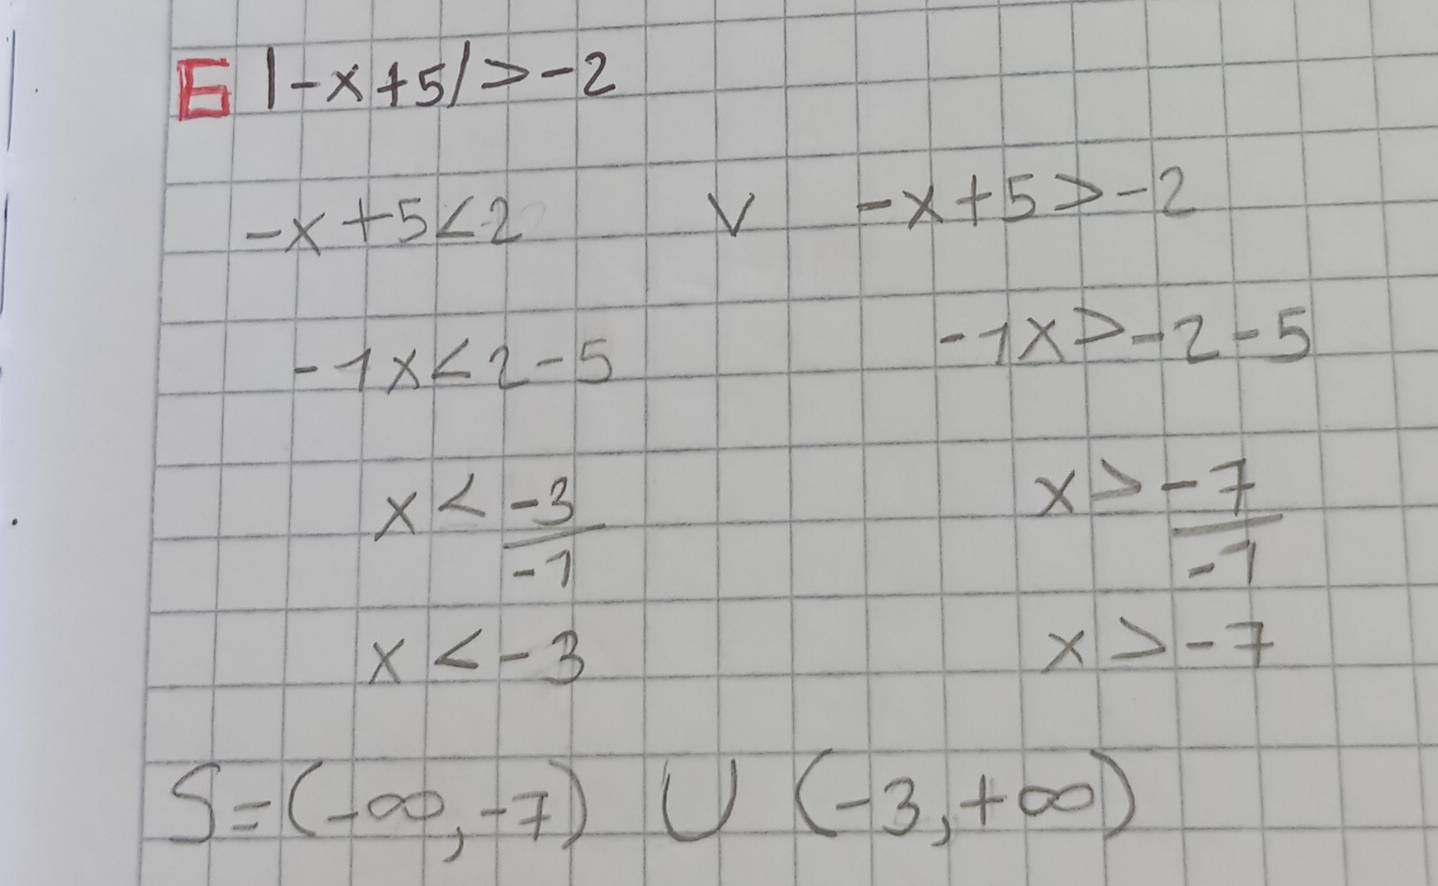 E |-x+5|>-2
-x+5<2 v -x+5>-2
-1x<2-5 -1x>-2-5
x < -3/-1 x > -7/-1
x < -3 x > -7
S=(-∞,-7) U (-3,+∞)